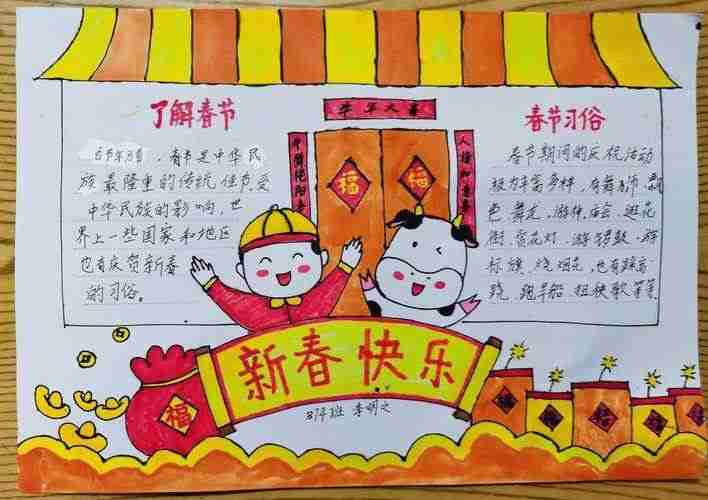 牛年大喜
了解春节
春节习俗
，春节是中华民
族最隆重的传统佳节，受
中华民族的影响，世
界上一些国家和地区
也有庆贺新春
的习俗。
福
福
春节期间的庆祝活动
极为丰富多样，有舞狮、飘
色、舞龙、游神、庙会、逛花
街、赏花灯、游锣鼓、游
标旗、烧烟花、也有踩高
跷、跑旱船、扭秧歌等等
新春快乐
福
班 李明